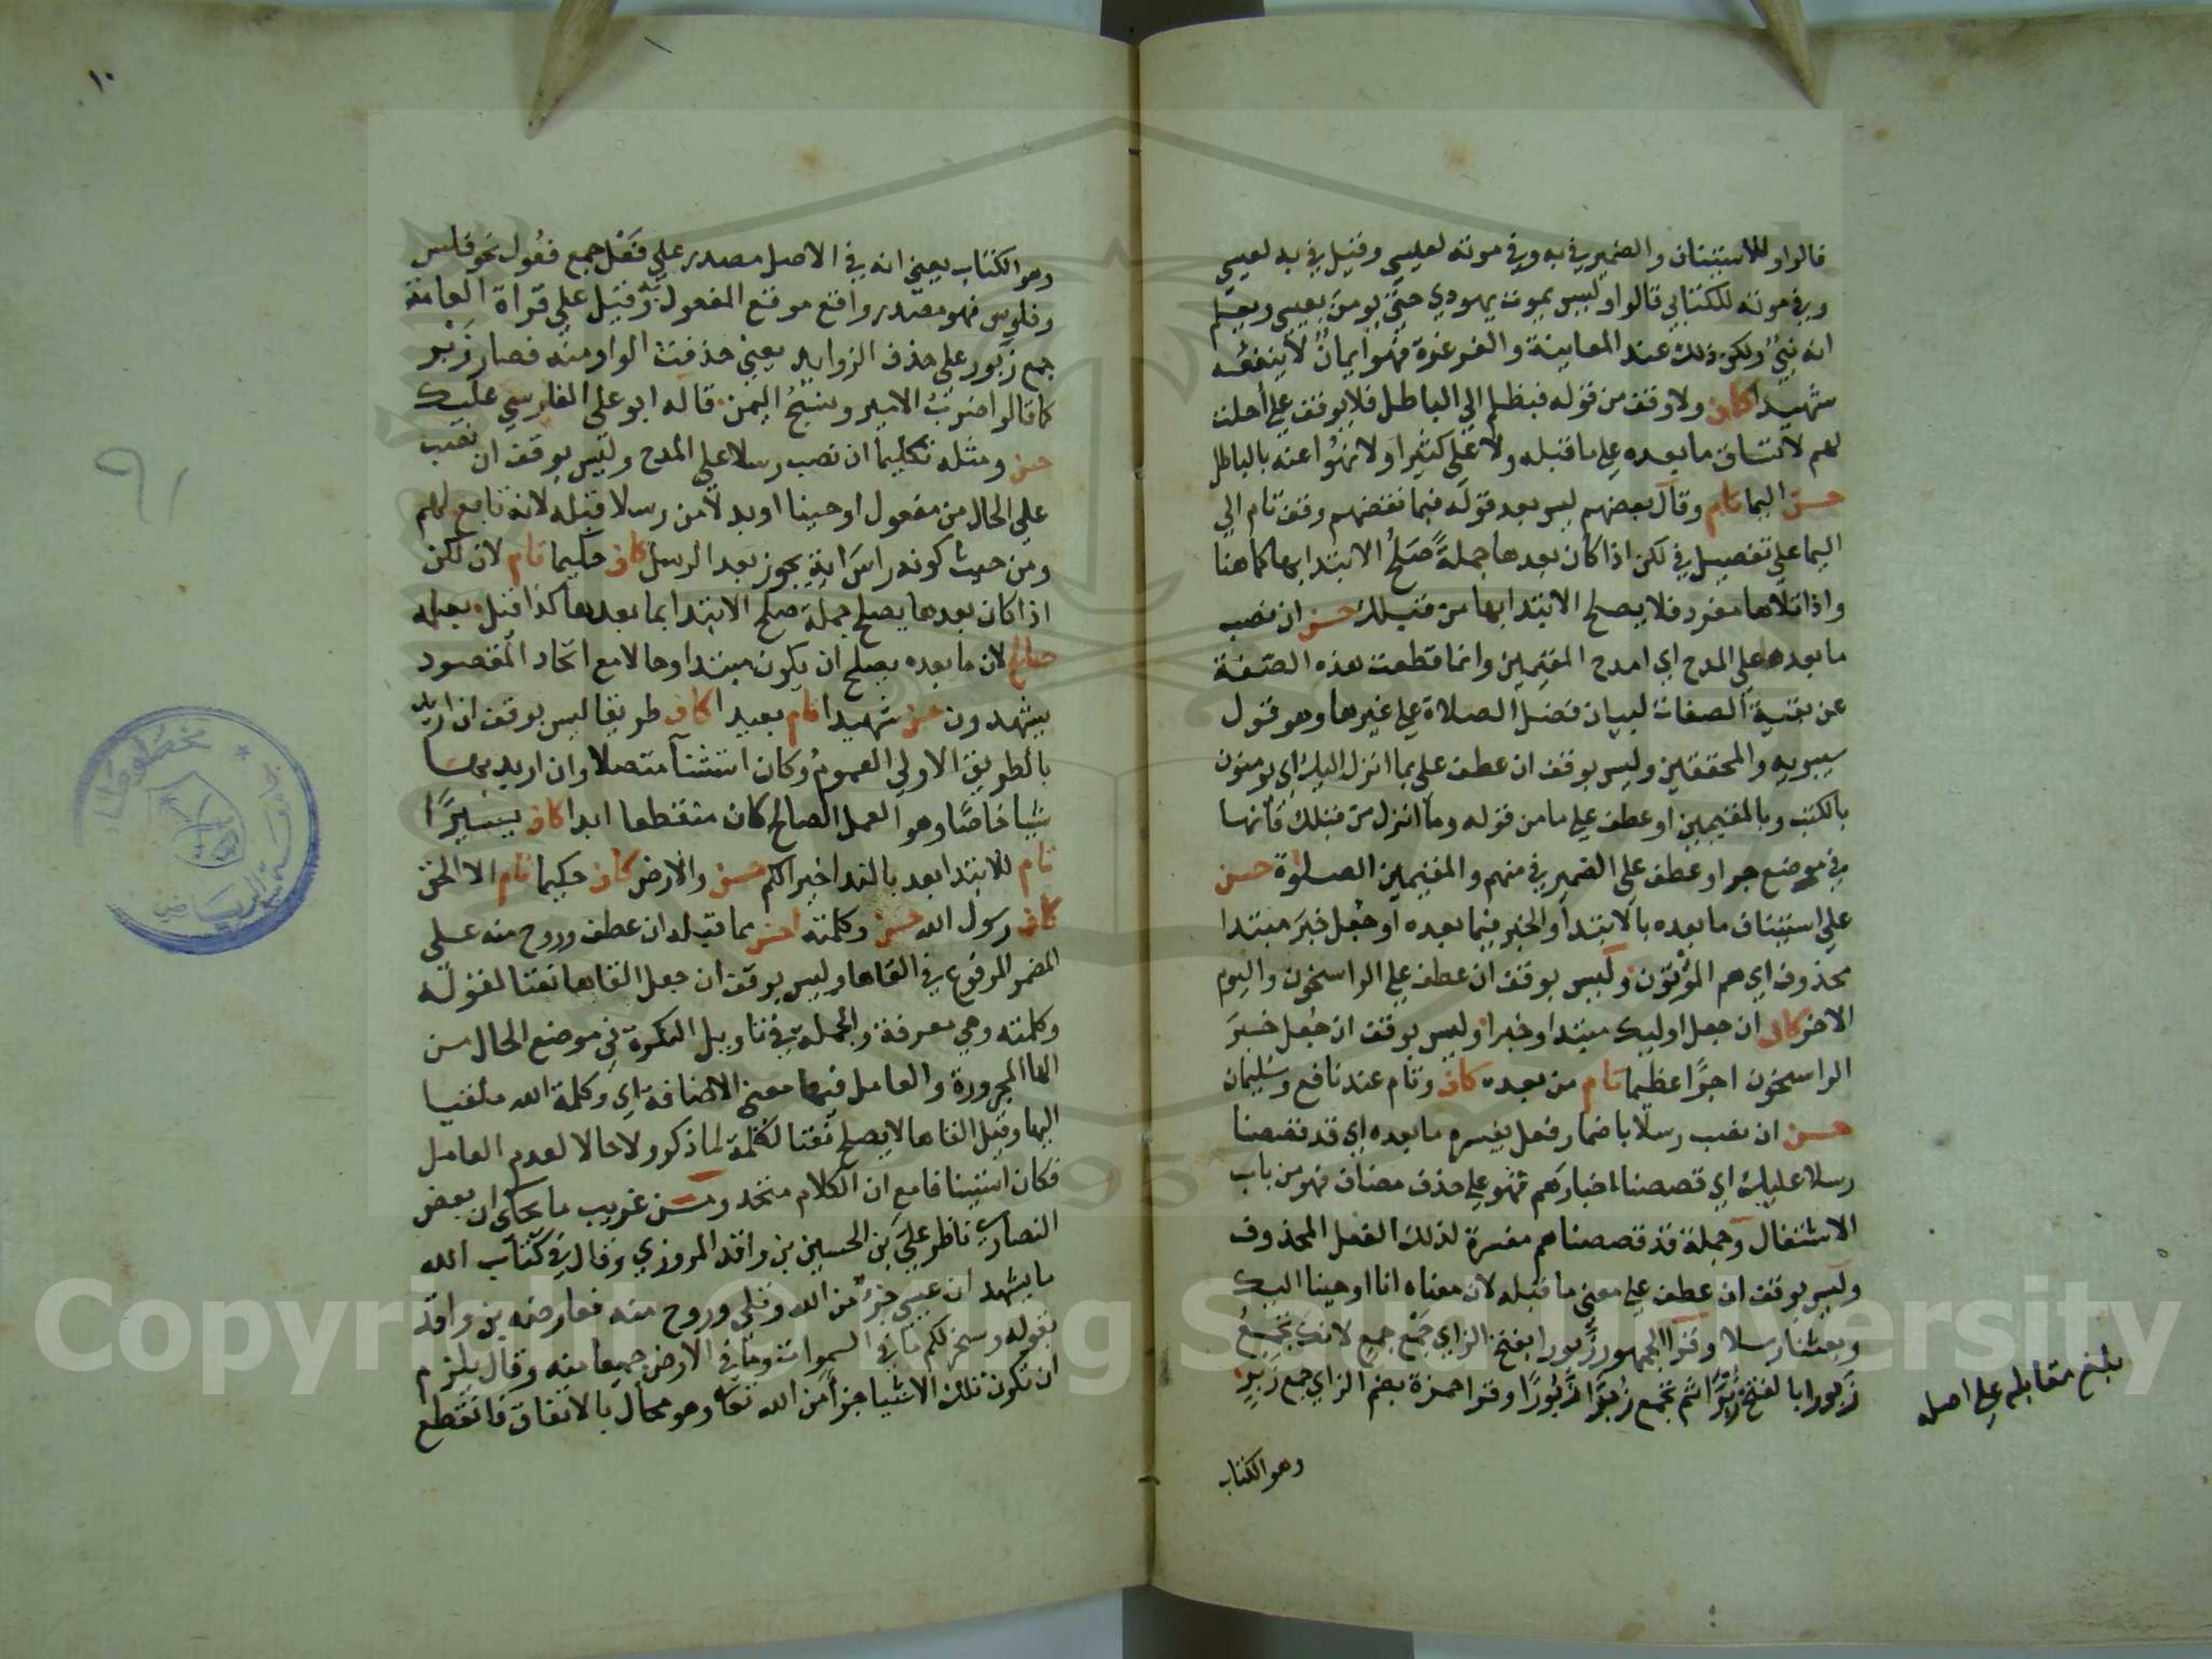 قالوا وللاستئناف والضمير في به وفي موته لعيسى وقيل في به لعيسى
وفي موته للكتابي قالوا وليس يموت يهودي حتى يؤمن بعيسى ويعلم
انه نبي ولكن ذلك عند المعاينة والغرغرة فهو ايمان لا ينفعه
شهيدا كاف ولا وقف من قوله فبظلم الى الباطل فلا يوقف على أحلت
لهم لاتساق ما بعده على ما قبله ولا على كثيرا ولا نهوا عنه بالباطل
حسن اليما تام وقال بعضهم ليس بعد قوله فبما نقضهم وقف تام الى
اليما على تفصيل في لكن اذا كان بعدها جملة صلح الابتدا بها كما هنا
واذا تلاها مفرد فلا يصلح الابتدا بها من قبلك حسن ان نصب
ما بعدها على المدح اي امدح المقيمين وانما قطعت هذه الصفة
عن بقية الصفات لبيان فضل الصلاة على غيرها وهو قول
سيبويه والمحققين وليس بوقف ان عطف على بما انزل اليك اي يؤمنون
بالكتب وبالمقيمين او عطف على ما من قوله وما انزل من قبلك فانها
في موضع جر او عطف على الضمير في منهم والمقيمين الصلوة حسن
على استئناف ما بعده بالابتدا والخبر فيما بعده او جعل خبر مبتدا
محذوف اي هم المؤتون وليس بوقف ان عطف على الراسخون واليوم
الاخر كاف ان جعل اوليك مبتدا وخبرا وليس بوقف ان جعل خبر
الراسخون اجرا عظيما تام من بعده كاف وتام عند نافع وسليمان
حسن ان نصب رسلا باضمار فعل يفسره ما بعده اي قد قصصنا
رسلا عليك اي قصصنا اخبارهم فهو على حذف مضاف فهو من باب
الاشتغال وجملة قد قصصناهم مفسرة لذلك الفعل المحذوف
وليس بوقف ان عطف على معنى ما قبله لان معناه انا اوحينا اليك
وبعثنا رسلا وقرا الجمهور زبورا بفتح الزاي جمع جمع لانك تجمع
زبورا بالفتح زبرا ثم تجمع زبرا زبورا وقرا حمزة بضم الزاي جمع زبر
وهو الكتاب
بلغ مقابلة على اصله
١٠
وهو الكتاب يعني انه في الاصل مصدر على فعل جمع فعول نحو فلس
وفلوس فهو مصدر واقع موقع المفعول به وقيل على قراة العامة
جمع زبور على حذف الزوايد يعني حذفت الواو منه فصار زبر
كما قالوا ضرب الامير ونسج اليمن قاله ابو علي الفارسي عليك
حسن ومثله تكليما ان نصب رسلا على المدح وليس بوقف ان نصب
على الحال من مفعول اوحينا او بدلا من رسلا قبله لانه تابع لهم
ومن حيث كونه راس اية يجوز بعد الرسل كاف حكيما تام لان لكن
اذا كان بعدها يصلح جملة صلح الابتدا بما بعدها كذا قيل بعلمه
صالح لان ما بعده يصلح ان يكون مبتدا وحالا مع اتحاد المقصود
يشهدون حسن شهيدا تام بعيدا كاف طريقا ليس بوقف ان اريد
بالطريق الاولى العموم وكان استثنا متصلا وان اريد بها
شيا خاصا وهو العمل الصالح كان منقطعا ابدا كاف يسيرا
تام للابتدا بعد بالندا خيرا لكم حسن والارض كاف حكيما تام الا الحق
كاف رسول الله حسن وكلمته احسن مما قبله ان عطف وروح منه على
المضمر المرفوع في القاها وليس بوقف ان جعل القاها نعتا لقوله
وكلمته وهي معرفة والجملة في تاويل النكرة في موضع الحال من
الها المجرورة والعامل فيها معنى الاضافة اي وكلمة الله ملقيا
اليها وقيل القاها لا يصلح نعتا لكلمة لما ذكر ولا حالا لعدم العامل
فكان استينافا مع ان الكلام متحد ومن غريب ما يحكى ان بعض
النصارى ناظر علي بن الحسين بن واقد المروزي وقال في كتاب الله
ما يشهد ان عيسى جزء من الله وتلى وروح منه فعارضه بن واقد
بقوله وسخر لكم ما في السموات وما في الارض جميعا منه وقال يلزم
ان تكون تلك الاشيا جزأ من الله تعالى وهو محال بالاتفاق فانقطع
٩١
مخطوطات
جامعة الرياض
Copyright © King Saud University
1957